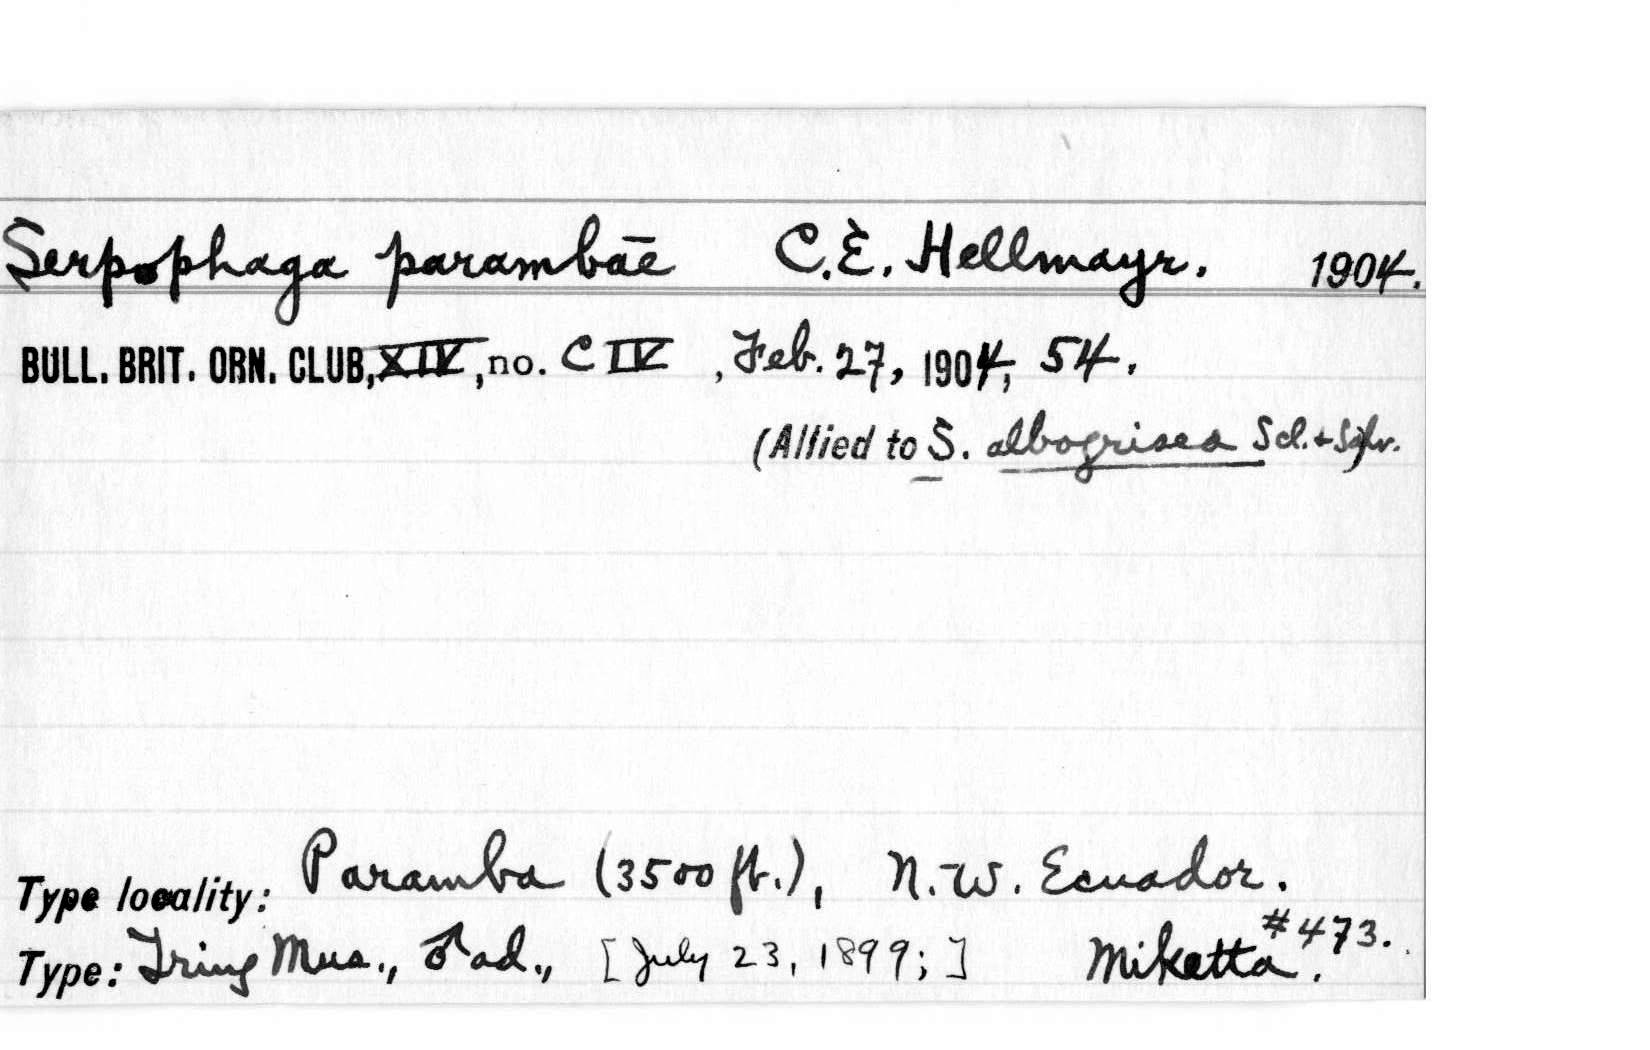 Serpophaga parambae C.E. Hellmayr. 1904.
BULL. BRIT. ORN. CLUB, XIV, no. CIV , Feb. 27, 1904, 54.
(Allied to S. albogrisea Scl. + Salv.
Type locality: Paramba (3500 ft.), N.-W. Ecuador.
Type: Tring Mus., ♂ ad., [July 23, 1899;] Miketta #473.